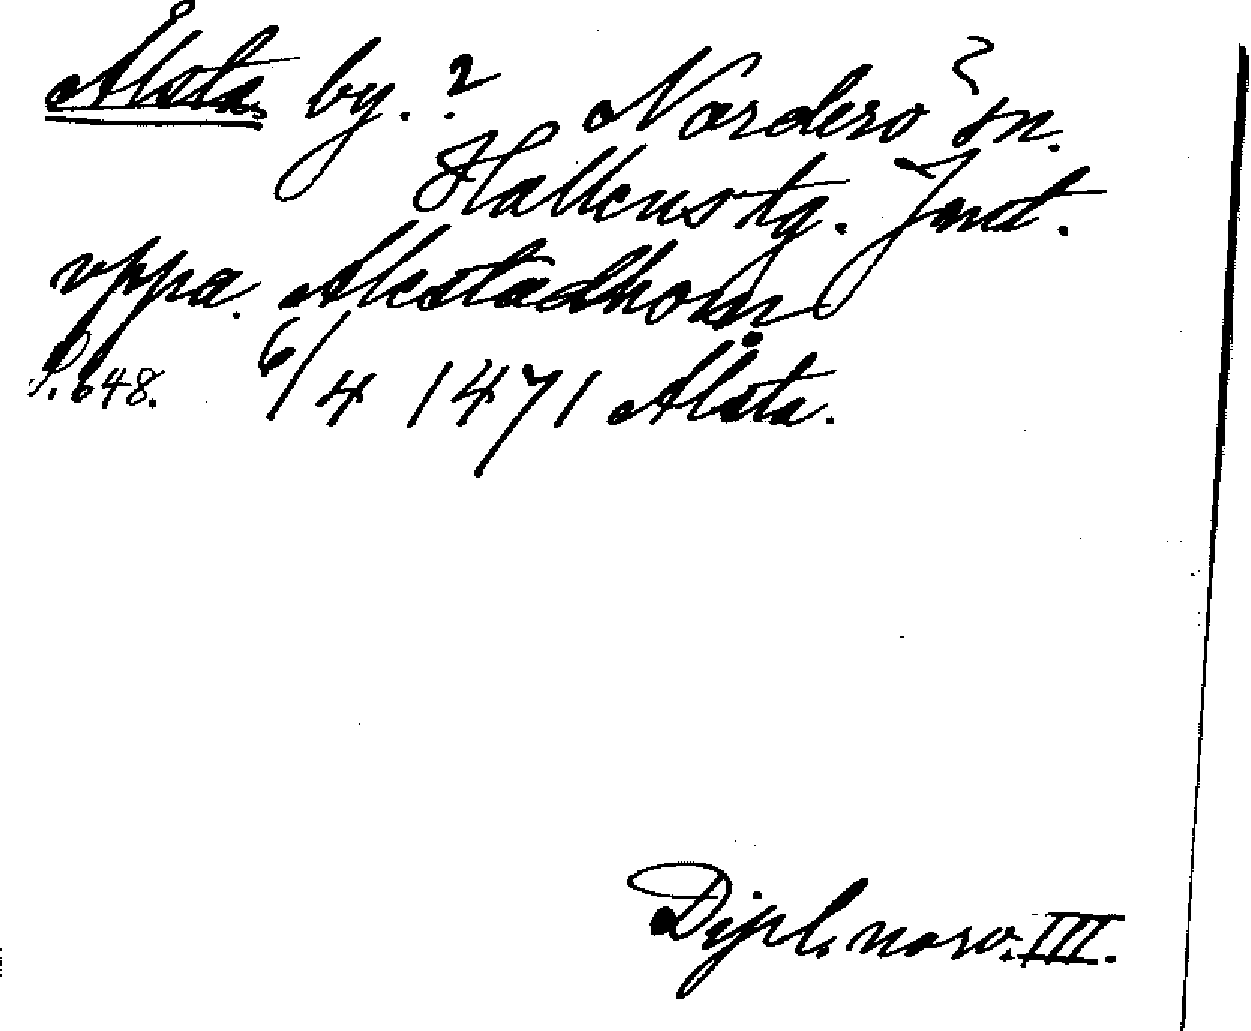 Ålsta by.? Norderö sn.
Hallens tg. Jmt.
vppa. Alestadholm
S. 648. 6/4 1471 Ålsta.
Dipl. norv. III.